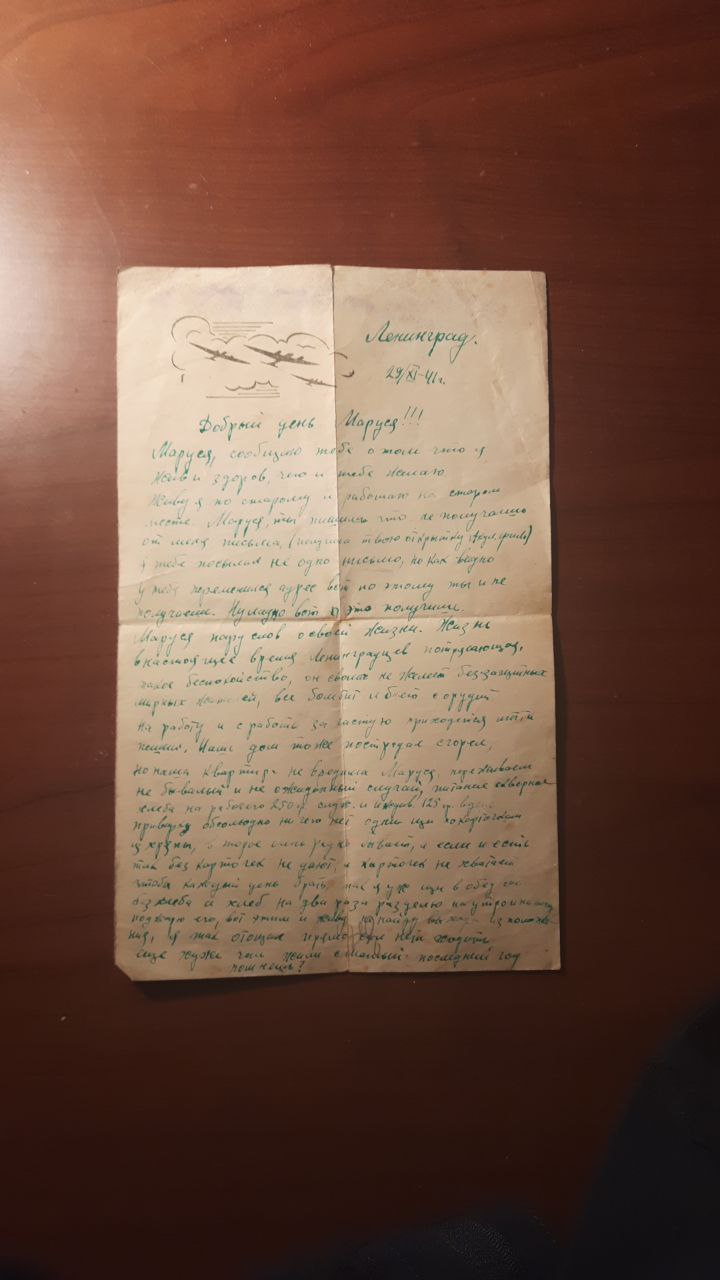 Ленинград.
29/XI-41г.
Добрый день Маруся!!!
Маруся, сообщаю тебе о том что я
жив и здоров, чего и тебе желаю
Живу я по старому и работаю на старом
месте. Маруся, ты пишешь что не получаешь
от меня письма, (получил твою открытку
я тебе посылал не одно письмо, но как видно
у тебя переменился адрес вот по этому ты и не
получаешь. Ну ладно вот это получиш.
Маруся пару слов о своей жизни. Жизнь
в настоящее время Ленинградцев потрясающая,
такое беспокойство, он сволоч не жалеет беззащитных
мирных жителей, все бомбит и бьет с орудий
на работу и с работы за частую приходится итти
пешим, Наш дом тоже пострадал сгорел,
но наша квартира не вредима Маруся, переживаем
не бывалый и не ожиданный случай, питание скверное
хлеба на рабочего 250 гр. служ. и иждив 125 гр. в день
приварку обсолюдно ни чего нет одни щи по карточкам
из хряпы, и то очень редко бывает, а если и есть
так без карточек не дают, а карточек не хватает
чтобы каждый день брать, так я уж щи в обед ем
без хлеба а хлеб на два раза разделю на утро и на
поджарю его, вот этим и живу, не найду выхода из положе-
ния, я так отощал прямо сил нет ходить
еще хуже чем жили с мамый последний год
помнешь?